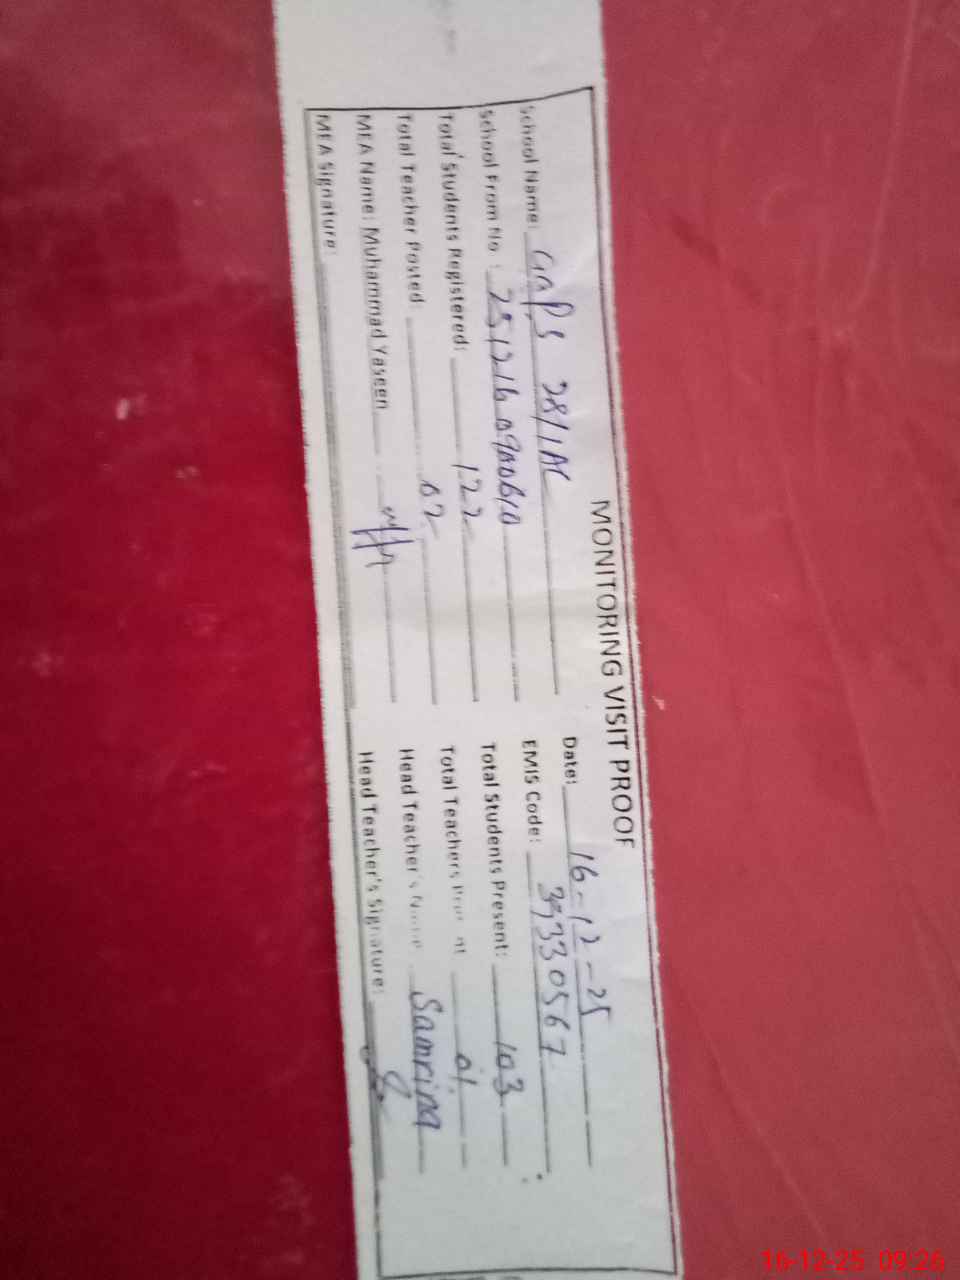 MONITORING VISIT PROOF
School Name: GGPS 28/1AL Date: 16-12-25
School From No : EMIS Code: 33330567
Total Students Registered: 122 Total Students Present: 103
Total Teacher Posted: 02 Total Teachers Present 01
MEA Name: Muhammad Yaseen Head Teacher's Name Samrina
MEA Signature: Head Teacher's Signature:
16-12-25 09:26